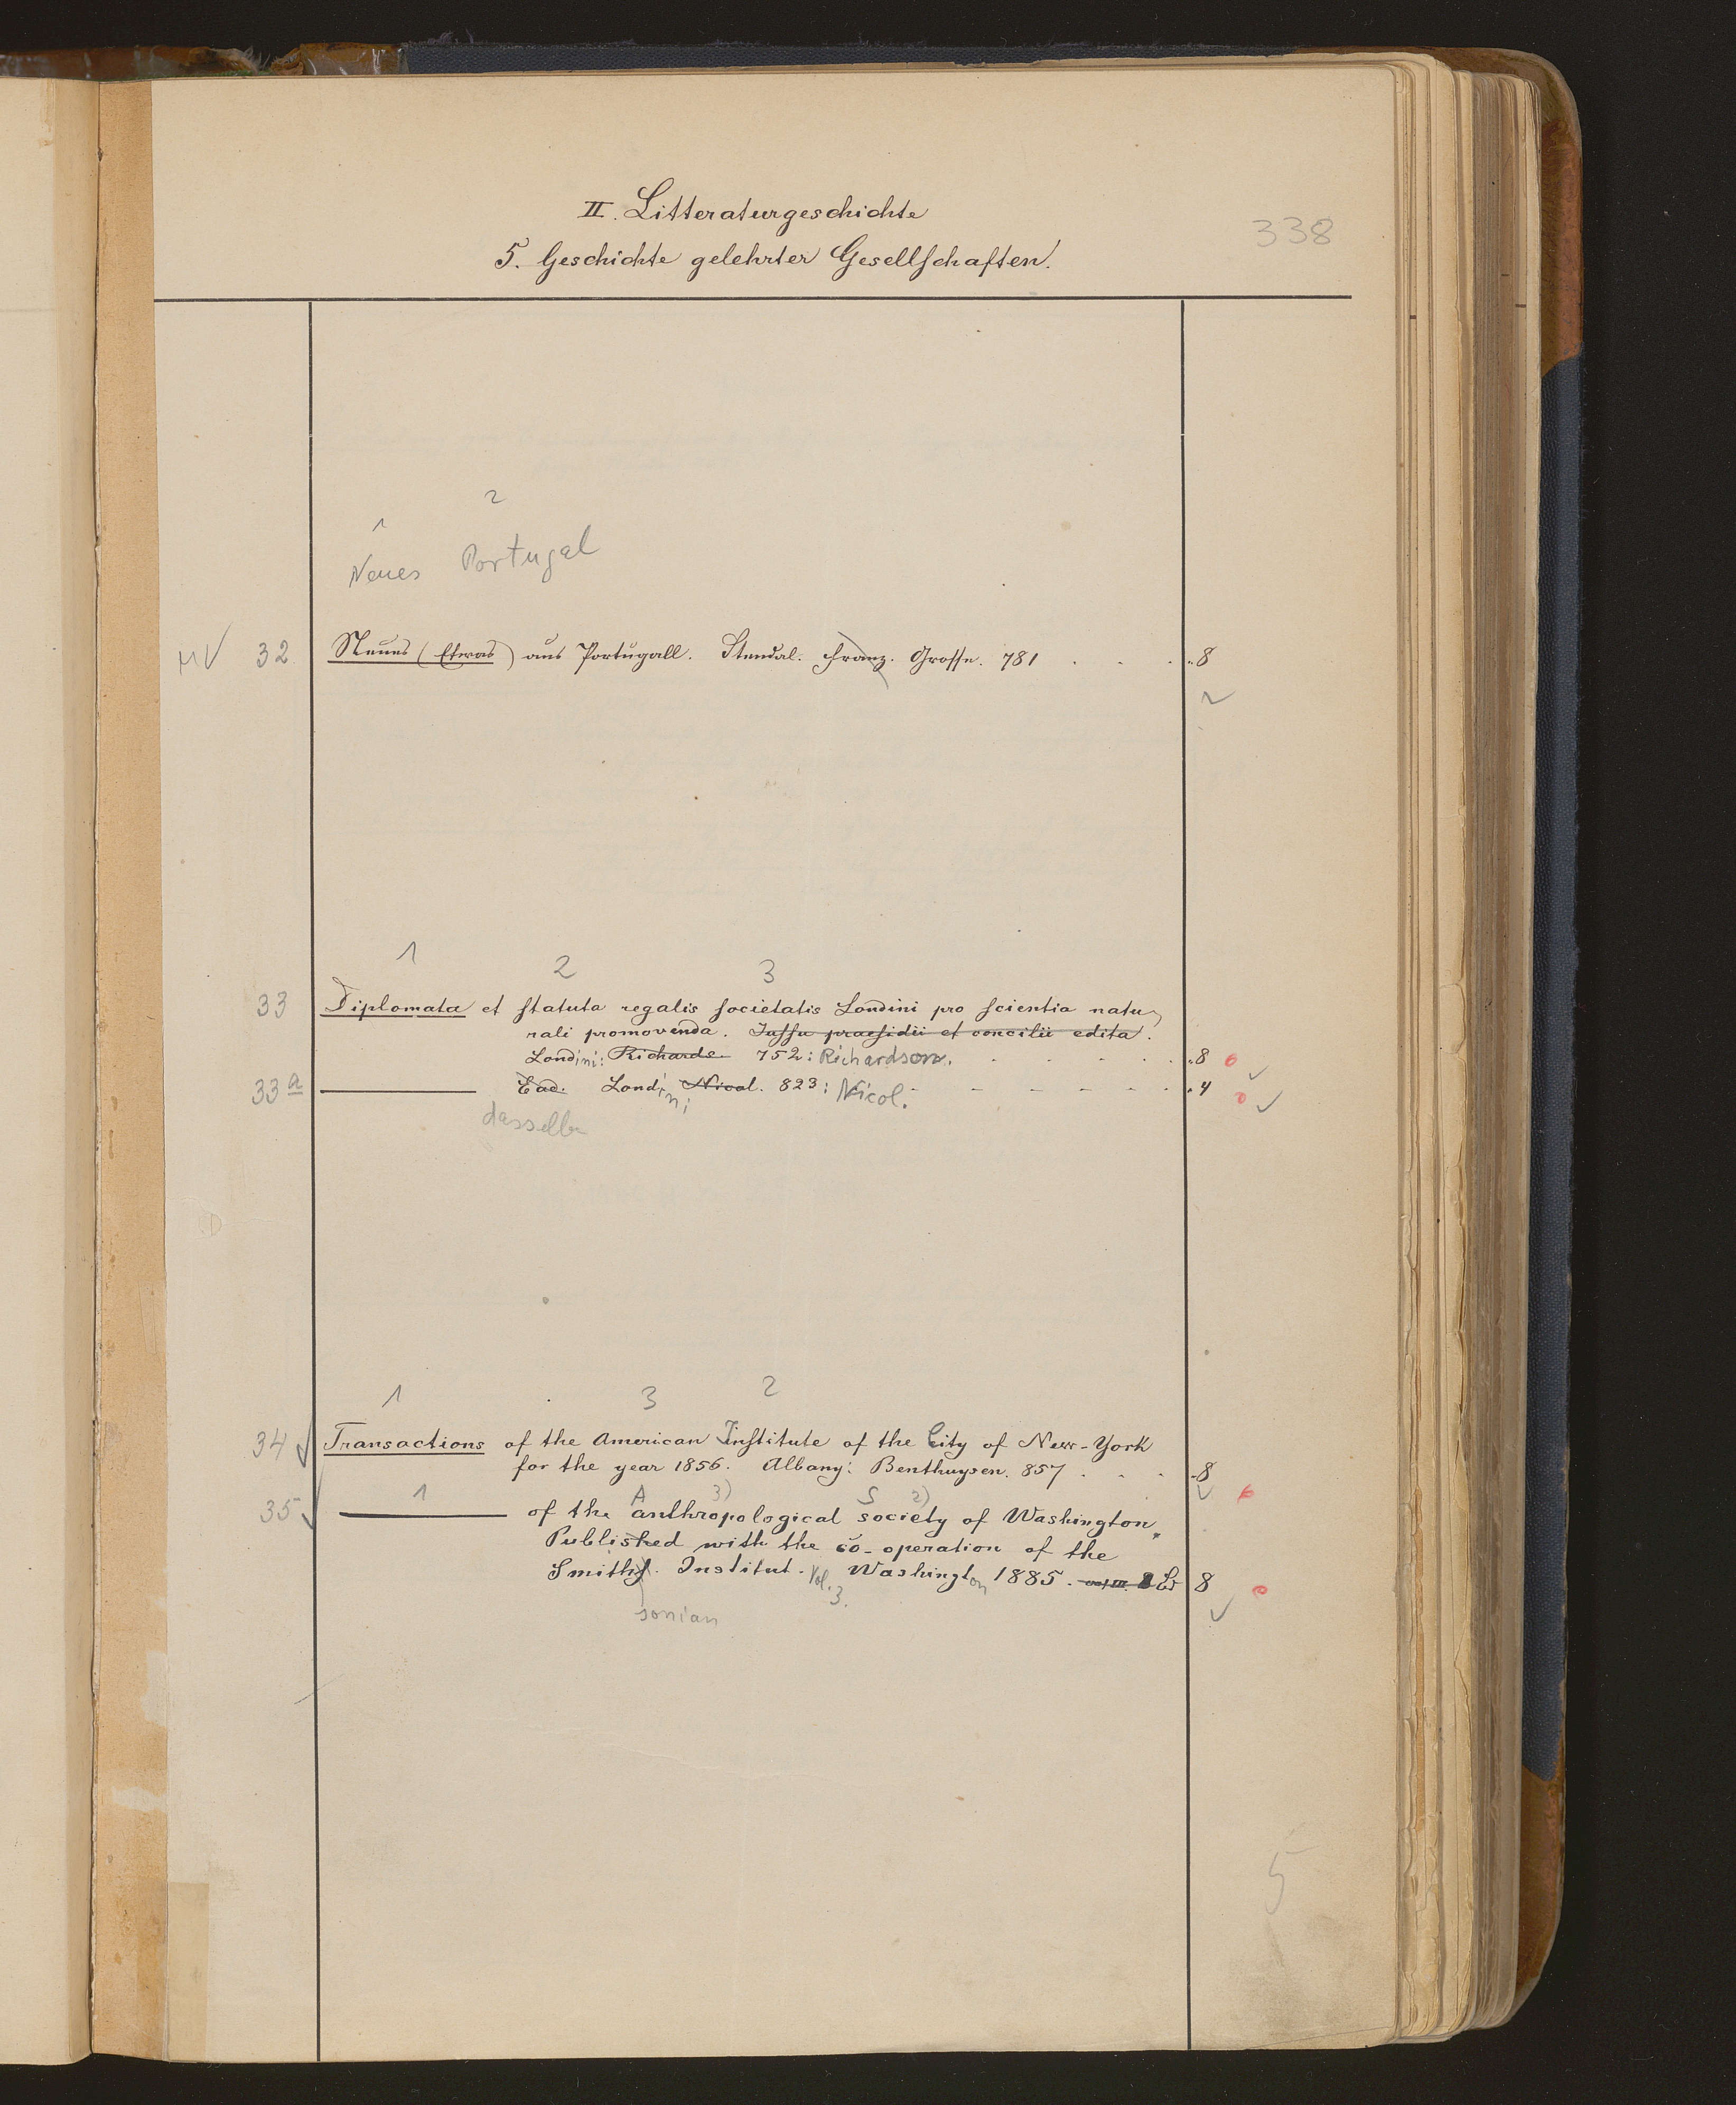 II. Litteraturgeschichte
338
5. Geschichte gelehrter Gesellschaften.
1 2
Neues Portugal
MV 32 Neues (Etwas) aus Portugall. Stendal. Franz. Grosse. 781 . . . 8
1 2 3
33 Diplomata et statuta regalis societatis Londini pro scientia natu-
rali promovenda. Jussu praesidii et concilii edita.
Londini: Richards. 752: Richardson. . . . . . 8 o
33a ——— Ead. Londini Nicol. 823: Nicol. - - - - . . 4 o
dasselbe
1 3 2
34 Transactions of the American Institute of the City of New-York
for the year 1856. Albany: Benthuysen. 857 . . . 8
35 1 ——— A 3) S 2)
of the anthropological society of Washington.
Published with the co-operation of the
Smiths. Institut. Vol. 3. Washington 1885. vol III. 8
sonian
5